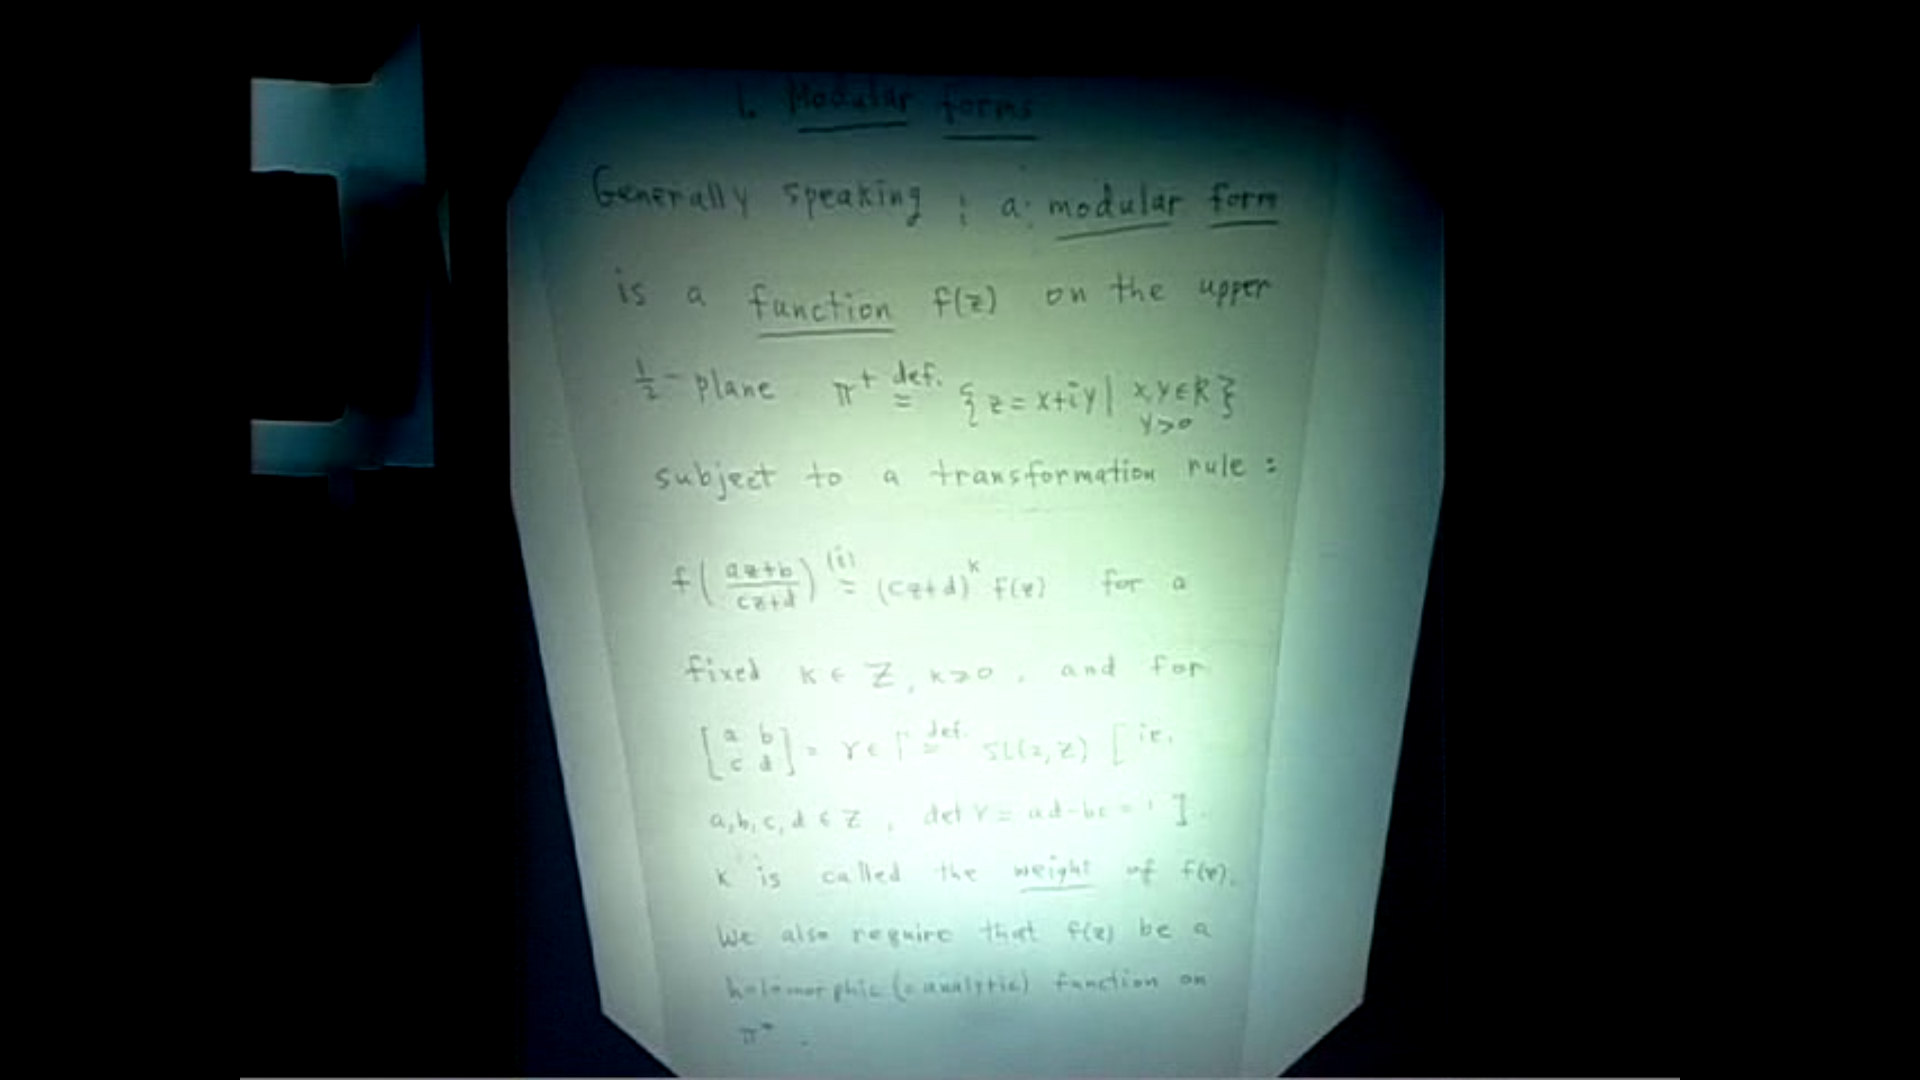 1. Modular forms
Generally speaking : a modular form
is a function f(z) on the upper
½-plane π⁺ def. = { z = x+iy | x,y∈R, y>0 }
subject to a transformation rule :
f( (az+b)/(cz+d) ) (1) = (cz+d)^k f(z) for a
fixed k ∈ Z, k>0, and for
[a b; c d] = γ ∈ Γ def. = SL(2,Z) [ie.
a,b,c,d ∈ Z, det γ = ad-bc = 1].
k is called the weight of f(z).
We also require that f(z) be a
holomorphic (= analytic) function on
π⁺.